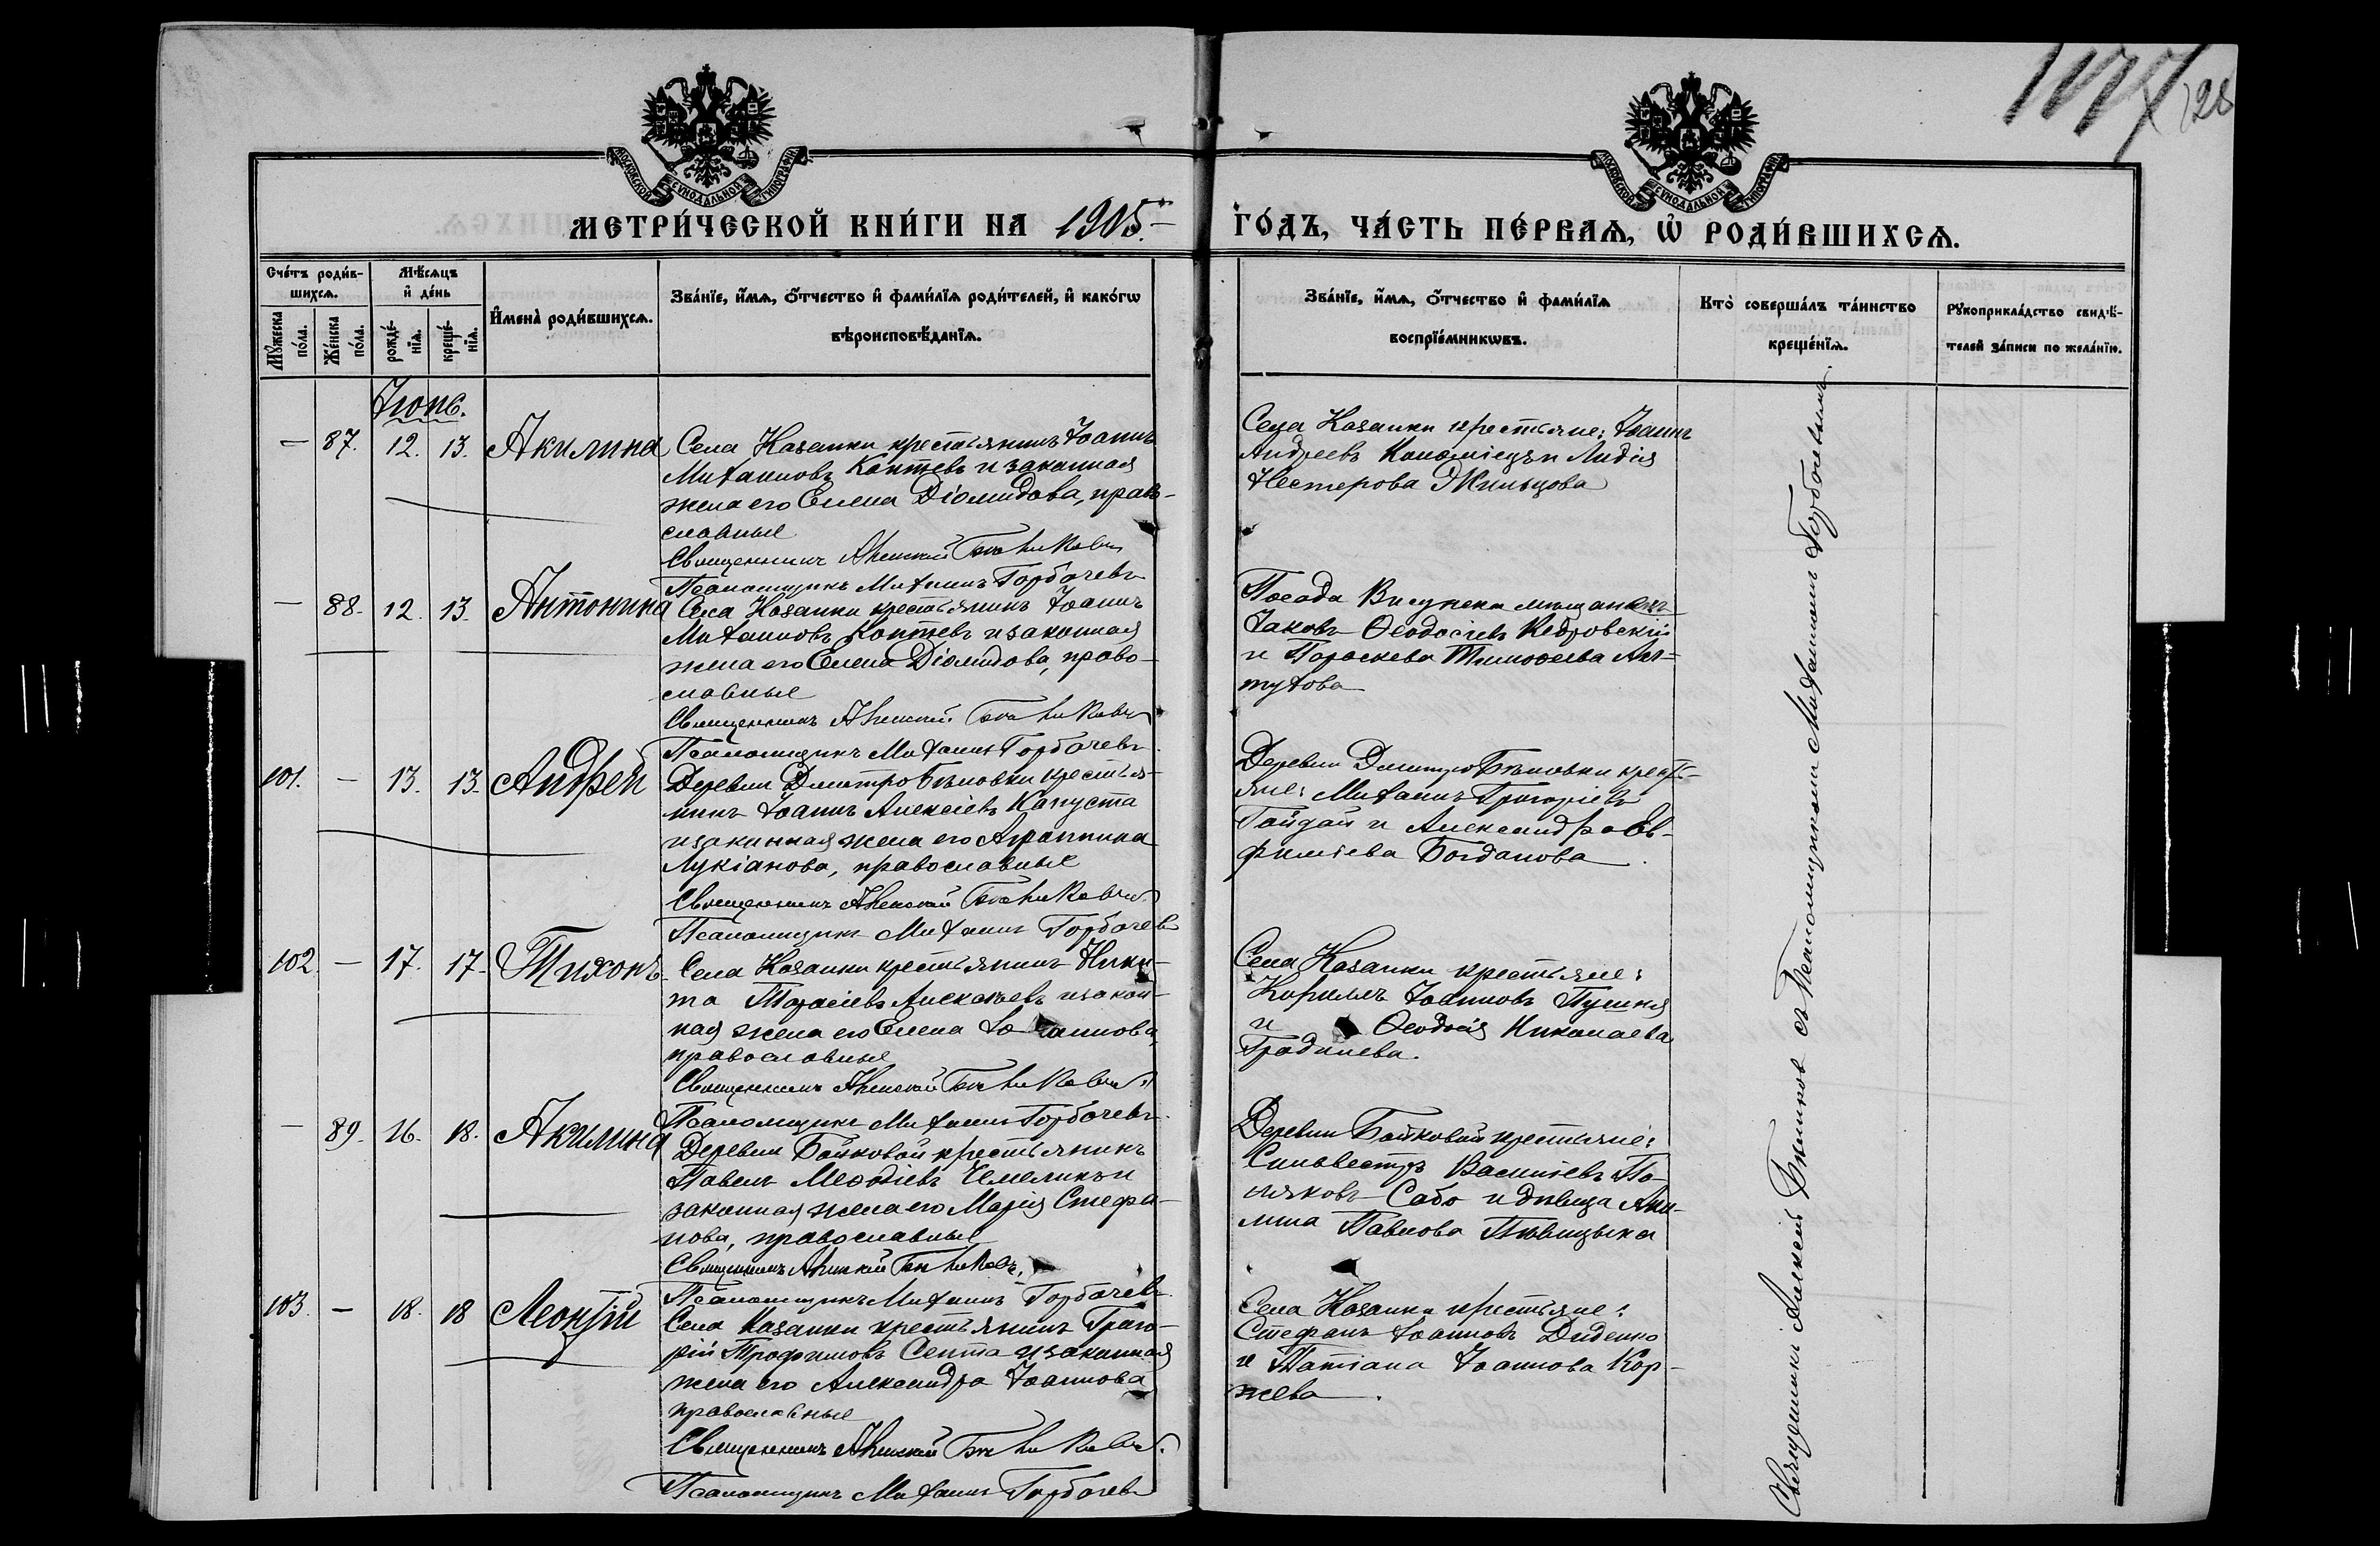 1177
128
МОСКОВСКОЙ СѴНОДАЛЬНОЙ ТИПОГРАФІИ
МОСКОВСКОЙ СѴНОДАЛЬНОЙ ТИПОГРАФІИ
МЕТРИ́ЧЕСКОЙ КНИ́ГИ НА 1905.
ГО́ДЪ, ЧА́СТЬ ПЕ́РВАѦ, Ѡ҆ РОДИ́ВШИХСѦ.
Сче́тъ роди́в-
шихсѧ.
Мꙋ́жеска по́ла.
Же́нска по́ла.
Мѣ́сѧцъ и҆ де́нь
рожде́-нїѧ.
креще́-нїѧ.
И҆мена̀ роди́вшихсѧ.
Зва́нїе, и҆́мѧ, ѻ҆́тчество и҆ фами́лїѧ роди́телей, и҆ како́гѡ
вѣроисповѣ́данїѧ.
Зва́нїе, и҆́мѧ, ѻ҆́тчество и҆ фами́лїѧ
воспрїе́мникѡвъ.
Кто̀ соверша́лъ та́инство
креще́нїѧ.
Рꙋкоприкла́дство свидѣ́-
телей за́писи по жела́нїю.
Іюнь.
— 87. 12. 13. Акилина
Села Казанки крестьянинъ Іоаннъ
Михаиловъ Коптевъ и законная
жена его Елена Діомидова, право-
славные
Священникъ Алексий
Псаломщикъ Михаилъ Горбачевъ
Села Казанки крестьяне: Іоаннъ
Андреевъ Коломіецъ и Лидія
Нестерова Жильцова
— 88. 12. 13. Антонина
Села Казанки крестьянинъ Іоаннъ
Михаиловъ Коптевъ и законная
жена его Елена Діомидова, право-
славные
Священникъ Алексий
Псаломщикъ Михаилъ Горбачевъ
Посада Висунска мещанинъ
Іаковъ Ѳеодосіевъ Кедровскій
и Параскева Тимоѳеева
101. — 13. 13. Андрей
Деревни Дмитро-Бѣловки крестья-
нинъ Іоаннъ Алексіевъ Капуста
и законная жена его Агриппина
Лукіанова, православные
Священникъ Алексий
Псаломщикъ Михаилъ Горбачевъ
Деревни Дмитро-Бѣловки кресть-
яне: Михаилъ Григоріевъ
Гайдай и Александра Ев-
фиміева Богданова.
102. — 17. 17. Тихонъ
Села Казанки крестьянинъ Ники-
та Тарасіевъ и закон-
ная жена его Елена Іоаннова,
православные
Священникъ Алексий
Псаломщикъ Михаилъ Горбачевъ
Села Казанки крестьяне:
Кириллъ Іоанновъ
и Ѳеодосія Николаева
— 89. 16. 18. Акилина
Деревни Бойковой крестьянинъ
Павелъ Меѳодіевъ Чемерикъ и
законная жена его Марія Стефа-
нова, православные
Священникъ Алексий
Псаломщикъ Михаилъ Горбачевъ
Деревни Бойковой крестьяне:
Сильвестръ Василіевъ По-
ляковъ-Сабо и дѣвица Аки-
лина Павлова
103. — 18. 18 Леонтій
Села Казанки крестьянинъ Григо-
рій Трофимовъ Септа и законная
жена его Александра Іоаннова
православные
Священникъ Алексий
Псаломщикъ Михаилъ Горбачевъ
Села Казанки крестьяне:
Стефанъ Іоанновъ Диденко
и Татіана Іоаннова Кор-
жева.
Священникъ Алексий съ Псаломщикомъ Михаиломъ Горбачевымъ.